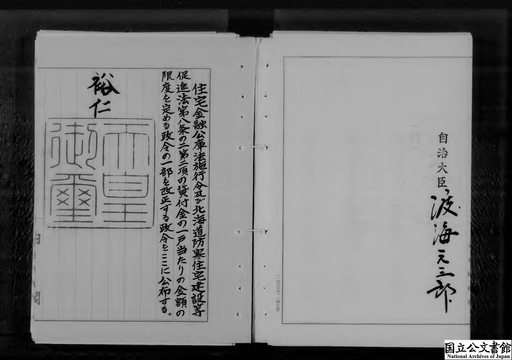 住宅金融公庫法施行令及び北海道防寒住宅建設等
促進法第八条の二第二項の貸付金の一戸当たりの金額の
限度を定める政令の一部を改正する政令をここに公布する。
裕仁
天皇
御璽
自治大臣
渡海元三郎
国立公文書館
National Archives of Japan